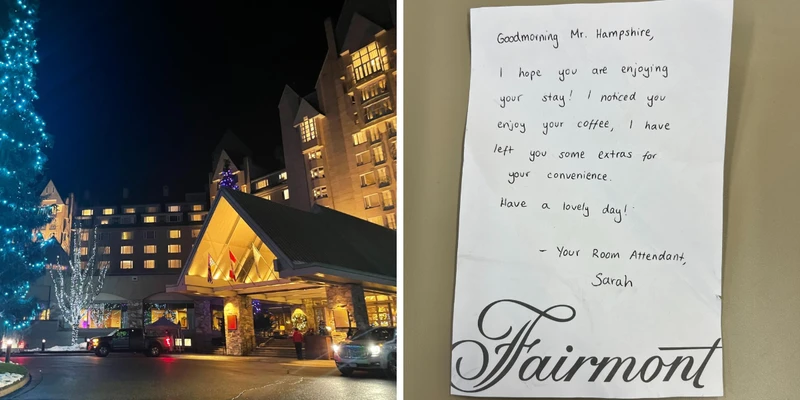 Goodmorning Mr. Hampshire,
I hope you are enjoying
your stay! I noticed you
enjoy your coffee, I have
left you some extras for
your convenience.
Have a lovely day!
- Your Room Attendant,
Sarah
Fairmont